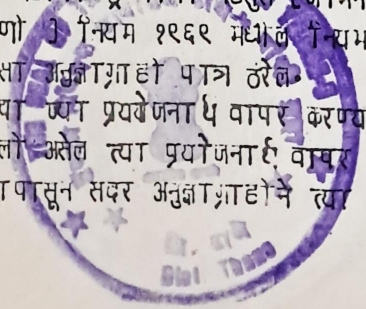 णी ] नियम १९६९ मधील नियम
सा अनुज्ञाग्राही पात्र ठरेल.
या ज्या प्रययेजनार्थ वापर करण्य
लो असेल त्या प्रयोजनार्थ वापर
ापासून सदर अनुज्ञाग्राहीने त्या
Dist Thane